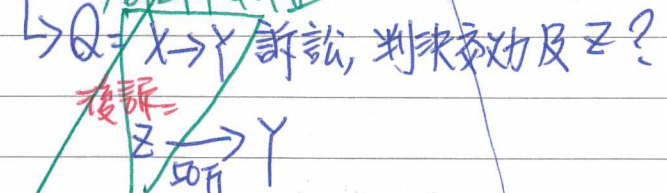 ↳Q: X→Y 訴訟, 判決效力及 Z?
後訴:
Z → Y
50万